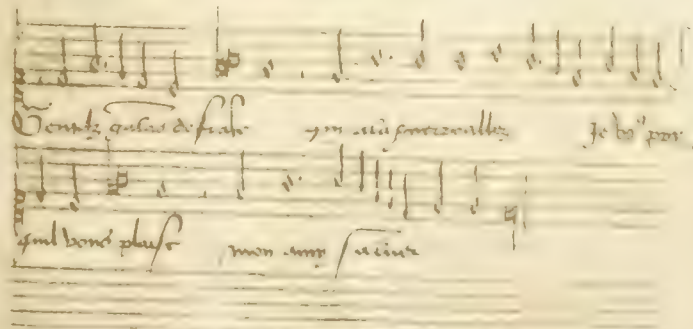 Gentilz galas de france qui en la guerre allez Je vo⁹ pry
quil vous plaise mon amy saluer